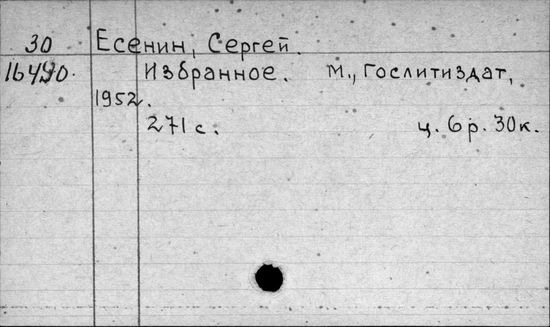 30 Есенин, Сергей.
16490. Избранное. М., Гослитиздат,
1952.
271 с. ц. 6 р. 30к.